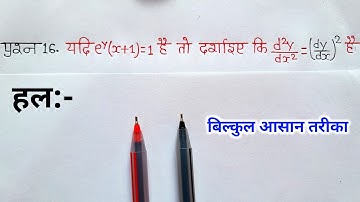 प्रश्न 16. यदि e^y(x+1)=1 है तो दर्शाइए कि d²y/dx² = (dy/dx)² है
हल:-
बिल्कुल आसान तरीका